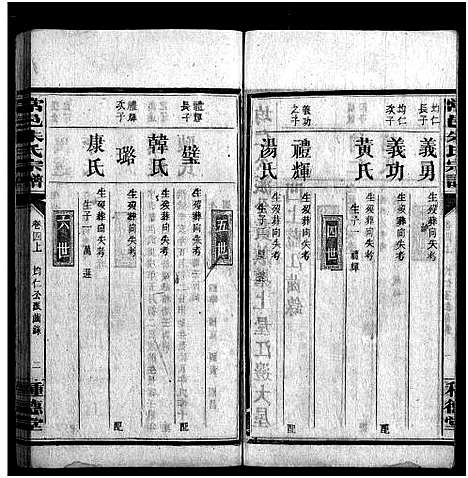 均仁
長子
義勇
生歿葬向失考
次子
義功
生歿葬向失考
配
黃氏
生歿葬向失考
生子一 禮輝
四世
義功
之子
禮輝
生歿葬向失考
配
湯氏
生歿葬向失考
生子二
五世
禮輝
長子
璧
生歿葬向失考
配
韓氏
生歿葬向失考
體輝
次子
璐
生歿葬向失考
配
康氏
生歿葬向失考
生子一 萬進
六世
常邑朱氏宗譜
卷四上
均仁公
二
種德堂